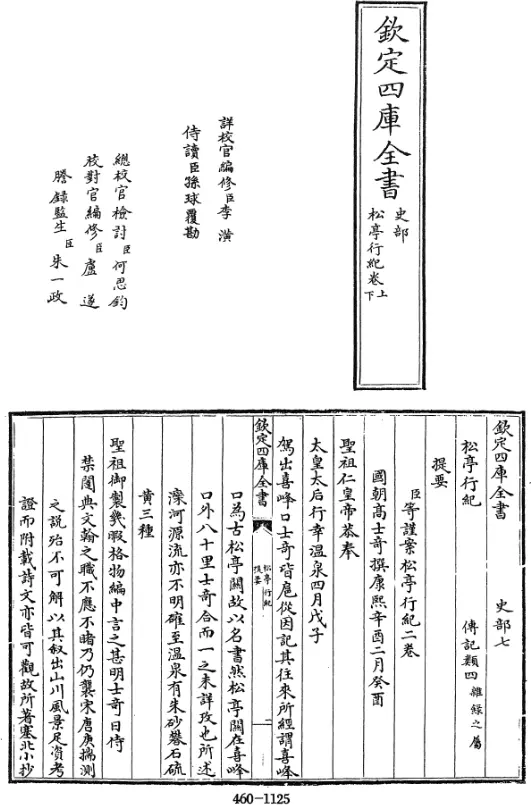 欽定四庫全書
史部
松亭行紀卷上下
詳校官編修臣李潢
侍讀臣孫球覆勘
總校官檢討臣何思鈞
校對官編修臣盧遂
謄錄監生臣朱一政
欽定四庫全書
史部七
松亭行紀
傳記類四雜錄之屬
提要
臣等謹案松亭行紀二卷
國朝高士奇撰康熙辛酉二月癸酉
聖祖仁皇帝恭奉
太皇太后行幸溫泉四月戊子
駕出喜峰口士奇皆扈從因記其往來所經謂喜峰
欽定四庫全書
松亭行紀
提要
一
口為古松亭關故以名書然松亭關在喜峰
口外八十里士奇合而一之未詳攷也所述
灤河源流亦不明確至溫泉有朱砂礬石硫
黄三種
聖祖御製幾暇格物編中言之甚明士奇日侍
禁闥典文翰之職不應不睹乃仍襲宋唐庚揣測
之說殆不可解以其叙出山川風景足資考
證而附載詩文亦皆可觀故所著塞北小抄
460-1125